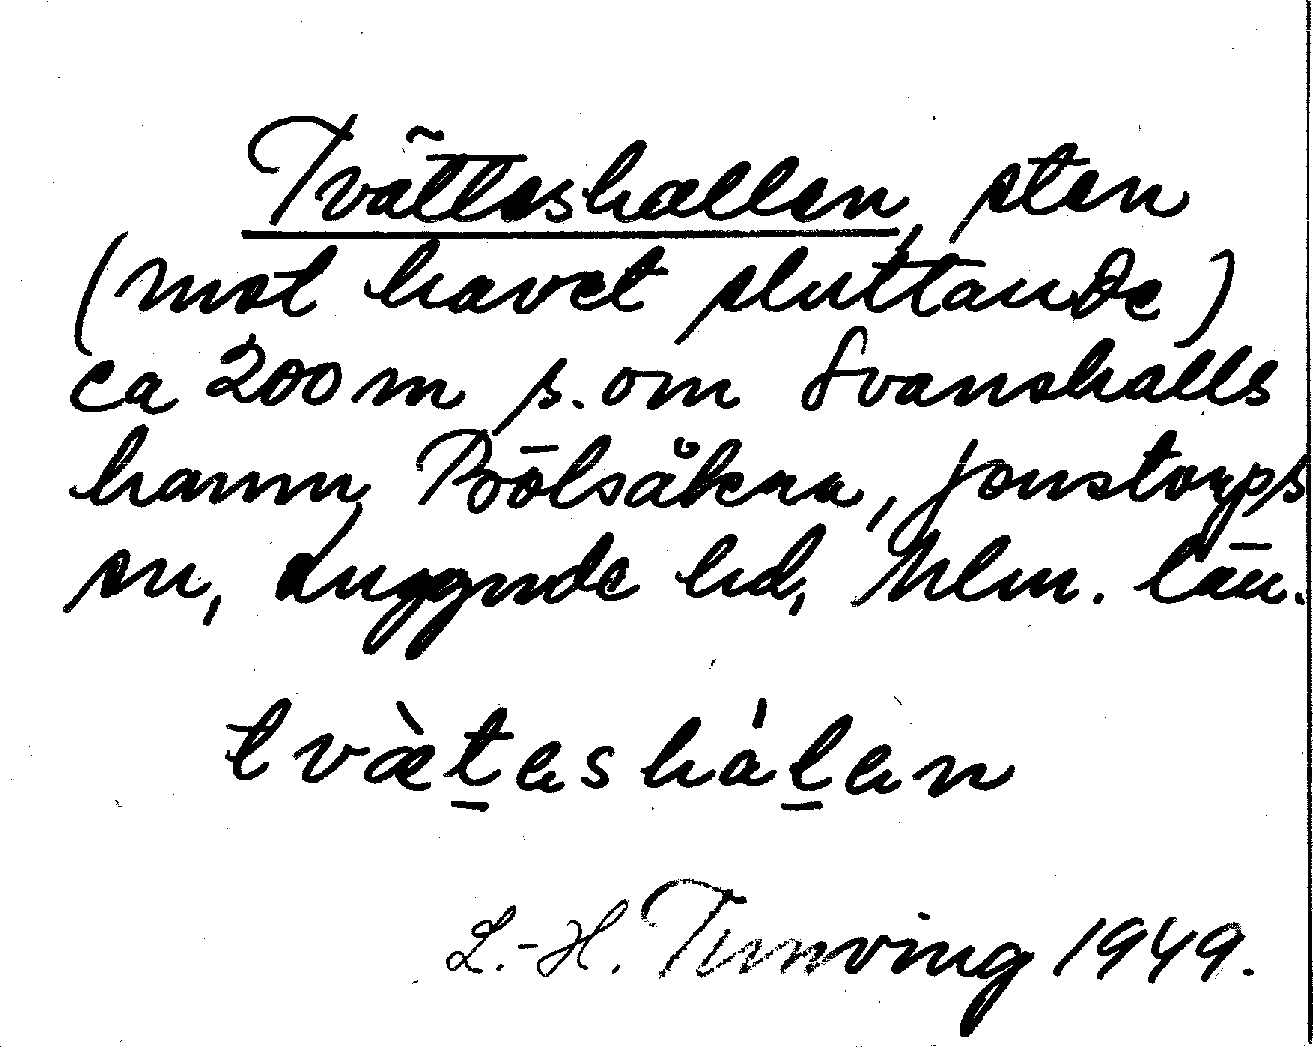 Tvätteshallen, sten
(mot havet sluttande)
ca 200 m s. om Svanshalls
hamn, Bölsåkra, Jonstorps
sn, Luggude hd, Mlm. län.
tvæ̀teshálen
L.-H. Tunving 1949.